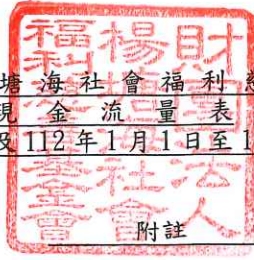 塘海社會福利慈
現金流量表
及112年1月1日至1
附註
財團法人
楊塘海社會
福利慈善
基金會